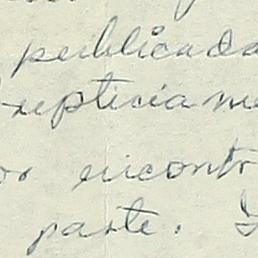 publicada
repticiame
or encontr
parte.